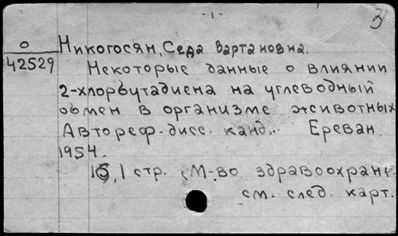 - 1 -
3
О
42529
Никогосян, Седа Вартановна.
Некоторые данные о влиянии
2-хлорбутадиена на углеводный
обмен в организме животных
Автореф. дисс. канд.. Ереван
1954.
16, 1 стр. (М-во здравоохране
см. след. карт.